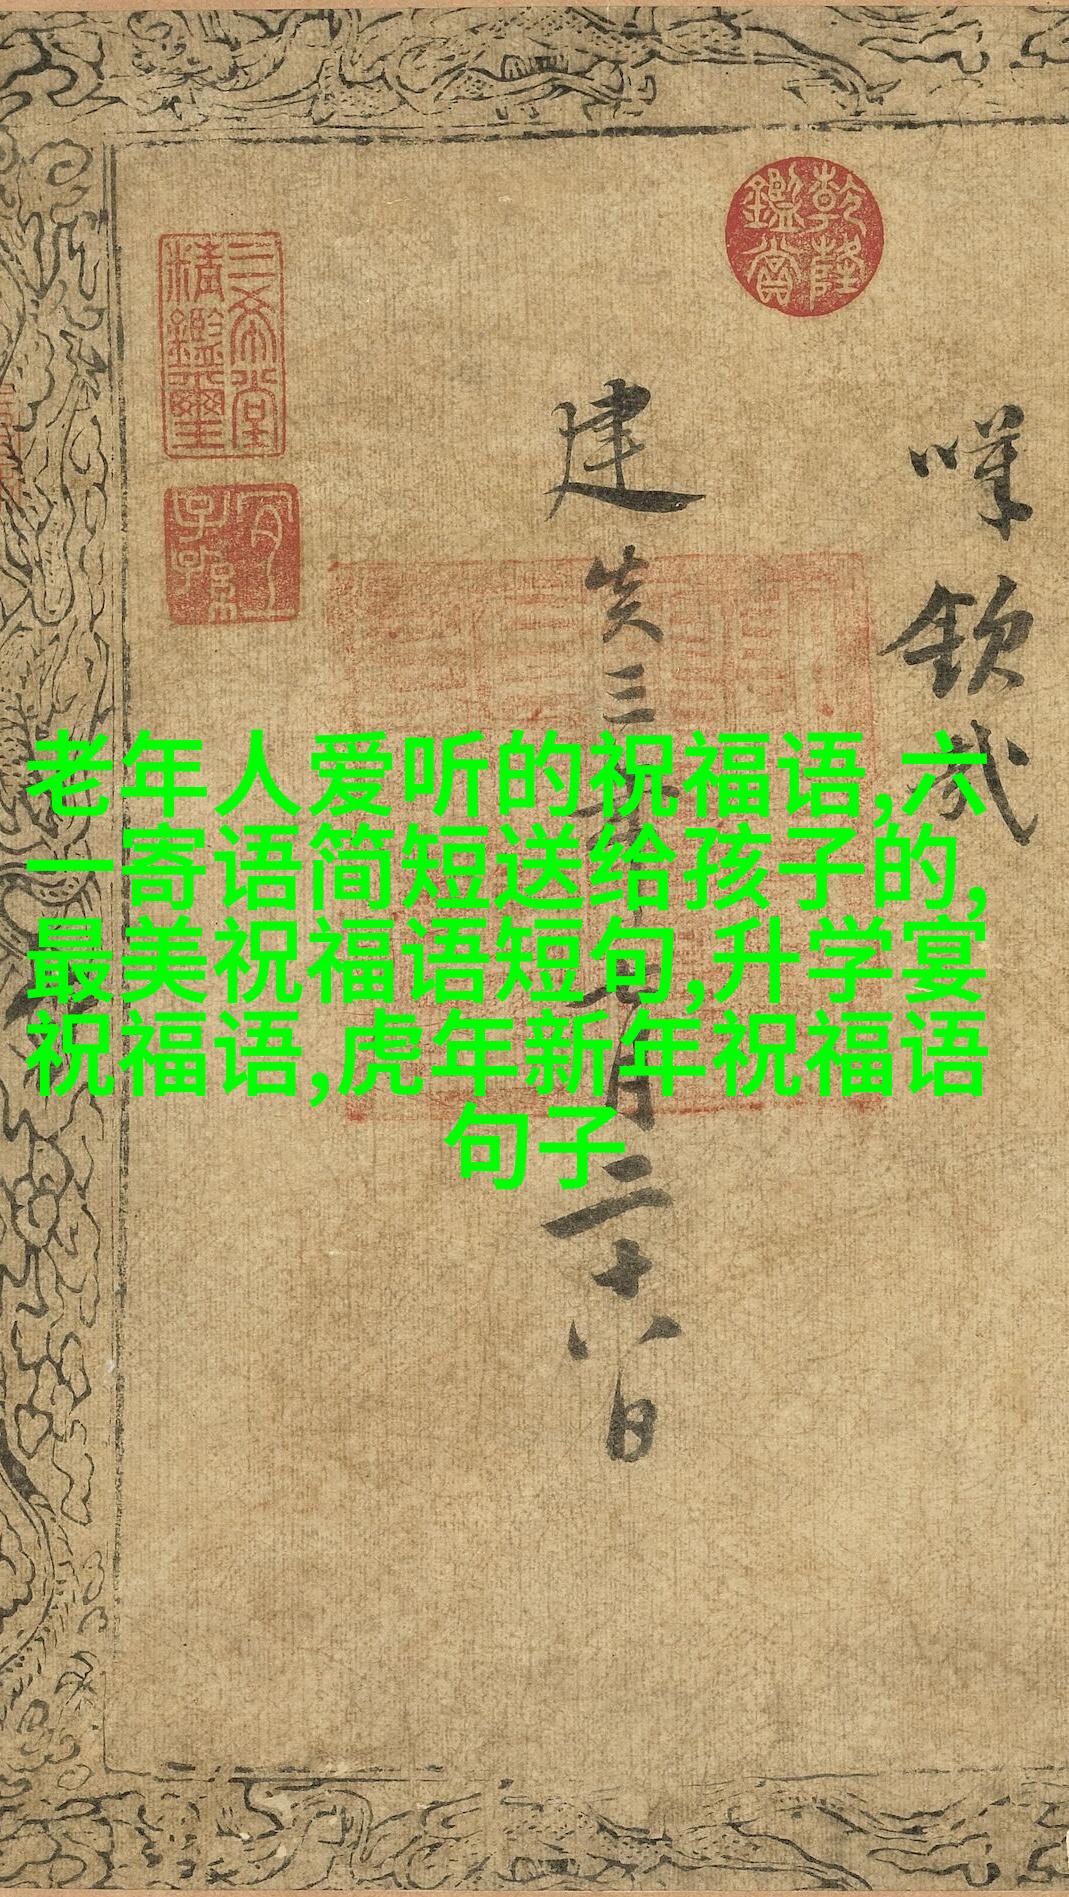 老年人爱听的祝福语,六
一寄语简短送给孩子的,
最美祝福语短句,升学宴
祝福语,虎年新年祝福语
句子
乾隆
鑑賞
嘆欽哉
建炎三年七月二十八日
三希堂
精鑑璽
宜
子孫